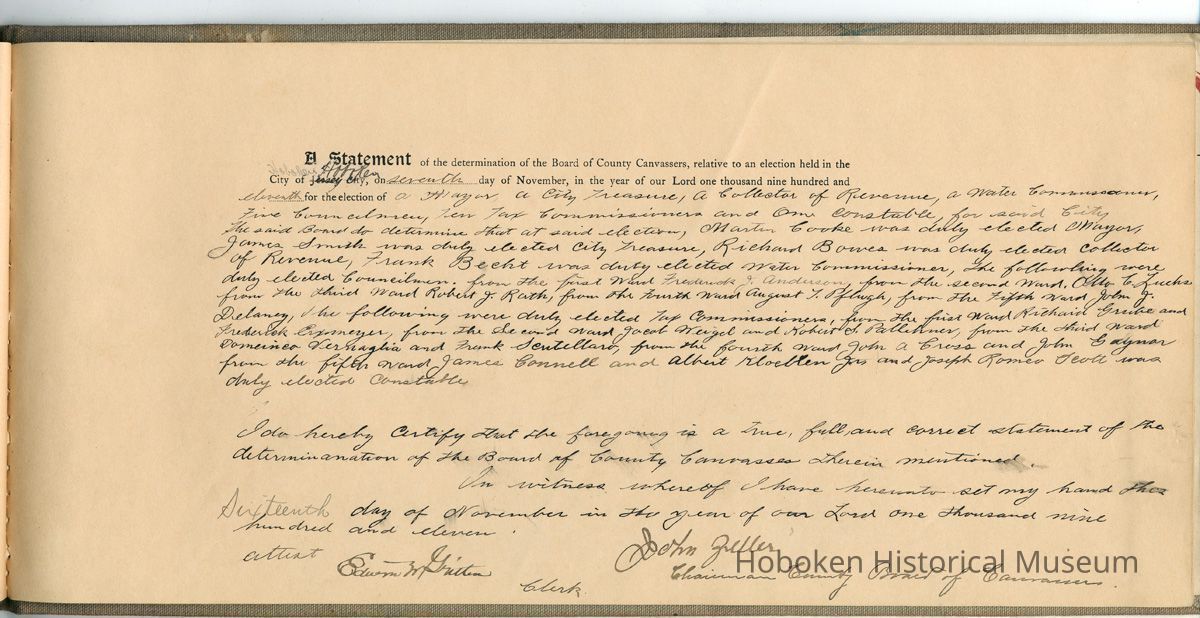 A Statement of the determination of the Board of County Canvassers, relative to an election held in the
City of Jersey City, Hoboken on seventh day of November, in the year of our Lord one thousand nine hundred and
eleventh for the election of a Mayor, a City Treasure, a Collector of Revenue, a Water Commissioner,
Five Councilmen, Ten Tax Commissioners and One Constable, for said City
The said Board do determine that at said election, Martin Cooke was duly elected Mayor,
James Smith was duly elected City Treasure, Richard Bowes was duly elected Collector
of Revenue, Frank Becht was duty elected Water Commissioner, the following were
duly elected Councilmen: from the first Ward Frederick J. Anderson, from the second Ward, Otto E. Fuchs
from the third Ward Robert J. Rath, from the Fourth Ward August T. Pflugh, from the Fifth Ward, John J.
Delaney, The following were duly elected Tax Commissioners, from the first Ward Richard Greibe and
Frederick from the Second Ward Jacob Weigel and Robert S. from the third Ward
Domenico Vernaglia and Frank Scutellaro, from the fourth Ward John A Cross and John Gaynor
from the fifth Ward James Connell and Albert Kloebten Jrs and Joseph Romeo Scott was
duly elected Constable
I do hereby Certify that the foregoing is a true, full, and correct statement of the
determinanation of the Board of County Canvasses therein mentioned.
In witness whereof I have hereunto set my hand this
Sixteenth day of November in the year of our Lord one thousand nine
hundred and eleven.
attest
Edwin W.
John Zeller
Clerk.
Chairman County Board of Canvassers.
Hoboken Historical Museum